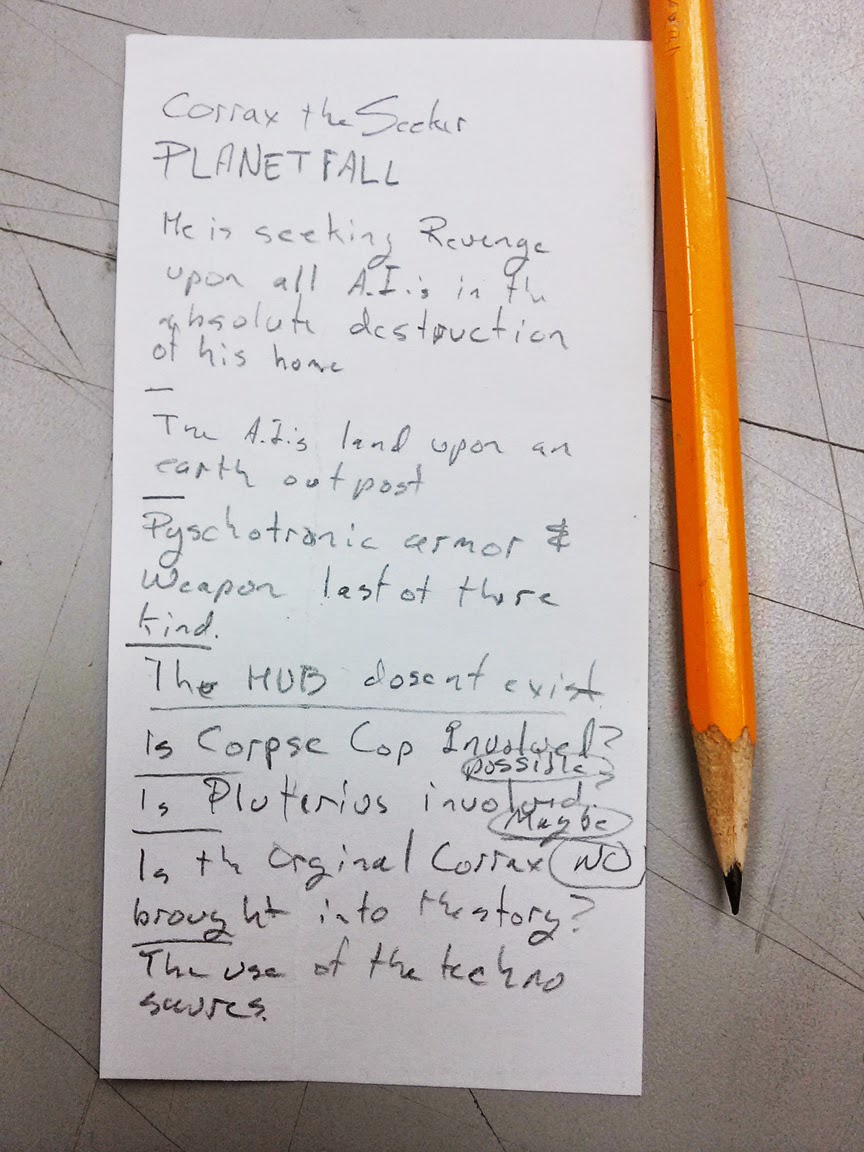 Corrax the Seeker
PLANETFALL
He is seeking Revenge
upon all A.I.'s in the
absolute destruction
of his home
The A.I.'s land upon an
earth outpost
Pyschotronic armor &
Weapon last of there
kind.
The HUB dosent exist
Is Corpse Cop Involved?
possible
Is Pluterius involved?
Maybe
Is th Orginal Corrax NO
brought into the story?
The use of the techno